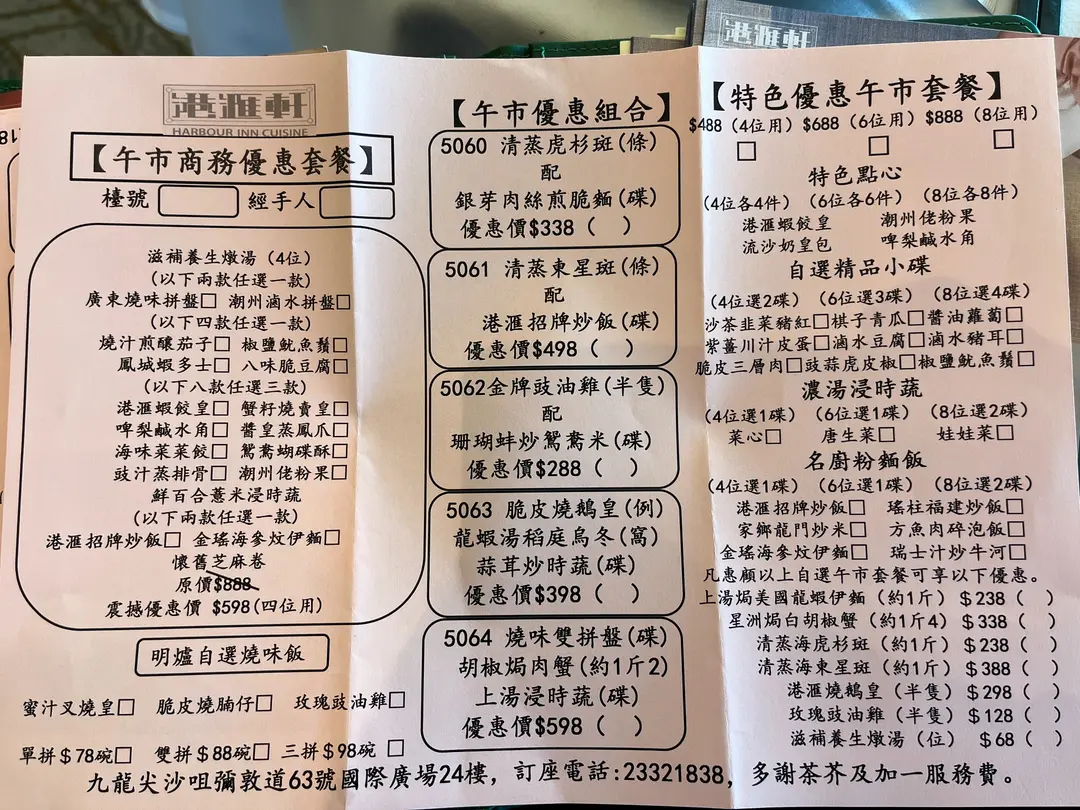 港滙軒
HARBOUR INN CUISINE
【午市商務優惠套餐】
檯號 經手人
滋補養生燉湯(4位)
(以下兩款任選一款)
廣東燒味拼盤□ 潮州滷水拼盤□
(以下四款任選一款)
燒汁煎釀茄子□ 椒鹽魷魚鬚□
鳳城蝦多士□ 八味脆豆腐□
(以下八款任選三款)
港滙蝦餃皇□ 蟹籽燒賣皇□
啤梨鹹水角□ 醬皇蒸鳳爪□
海味菜菜餃□ 鴛鴦蝴碟酥□
豉汁蒸排骨□ 潮州佬粉果□
鮮百合薏米浸時蔬
(以下兩款任選一款)
港滙招牌炒飯□ 金瑤海參炆伊麵□
懷舊芝麻卷
原價$888
震撼優惠價 $598(四位用)
明爐自選燒味飯
蜜汁叉燒皇□ 脆皮燒腩仔□ 玫瑰豉油雞□
單拼$78碗□ 雙拼$88碗□ 三拼$98碗□
【午市優惠組合】
5060 清蒸虎杉斑(條)
配
銀芽肉絲煎脆麵(碟)
優惠價$338( )
5061 清蒸東星斑(條)
配
港滙招牌炒飯(碟)
優惠價$498( )
5062金牌豉油雞(半隻)
配
珊瑚蚌炒鴛鴦米(碟)
優惠價$288( )
5063 脆皮燒鵝皇(例)
龍蝦湯稻庭烏冬(窩)
蒜茸炒時蔬(碟)
優惠價$398( )
5064 燒味雙拼盤(碟)
胡椒焗肉蟹(約1斤2)
上湯浸時蔬(碟)
優惠價$598( )
港滙軒
【特色優惠午市套餐】
$488(4位用) $688(6位用) $888(8位用)
□ □ □
特色點心
(4位各4件) (6位各6件) (8位各8件)
港滙蝦餃皇 潮州佬粉果
流沙奶皇包 啤梨鹹水角
自選精品小碟
(4位選2碟) (6位選3碟) (8位選4碟)
沙茶韭菜豬紅□棋子青瓜□醬油蘿蔔□
紫薑川汁皮蛋□滷水豆腐□滷水豬耳□
脆皮三層肉□豉蒜虎皮椒□椒鹽魷魚鬚□
濃湯浸時蔬
(4位選1碟) (6位選1碟) (8位選2碟)
菜心□ 唐生菜□ 娃娃菜□
名廚粉麵飯
(4位選1碟) (6位選1碟) (8位選2碟)
港滙招牌炒飯□ 瑤柱福建炒飯□
家鄉龍門炒米□ 方魚肉碎泡飯□
金瑤海參炆伊麵□ 瑞士汁炒牛河□
凡惠顧以上自選午市套餐可享以下優惠。
上湯焗美國龍蝦伊麵(約1斤)$238( )
星洲焗白胡椒蟹(約1斤4)$338( )
清蒸海虎杉斑(約1斤)$238( )
清蒸海東星斑(約1斤)$388( )
港滙燒鵝皇(半隻)$298( )
玫瑰豉油雞(半隻)$128( )
滋補養生燉湯(位)$68( )
九龍尖沙咀彌敦道63號國際廣場24樓，訂座電話:23321838，多謝茶芥及加一服務費。